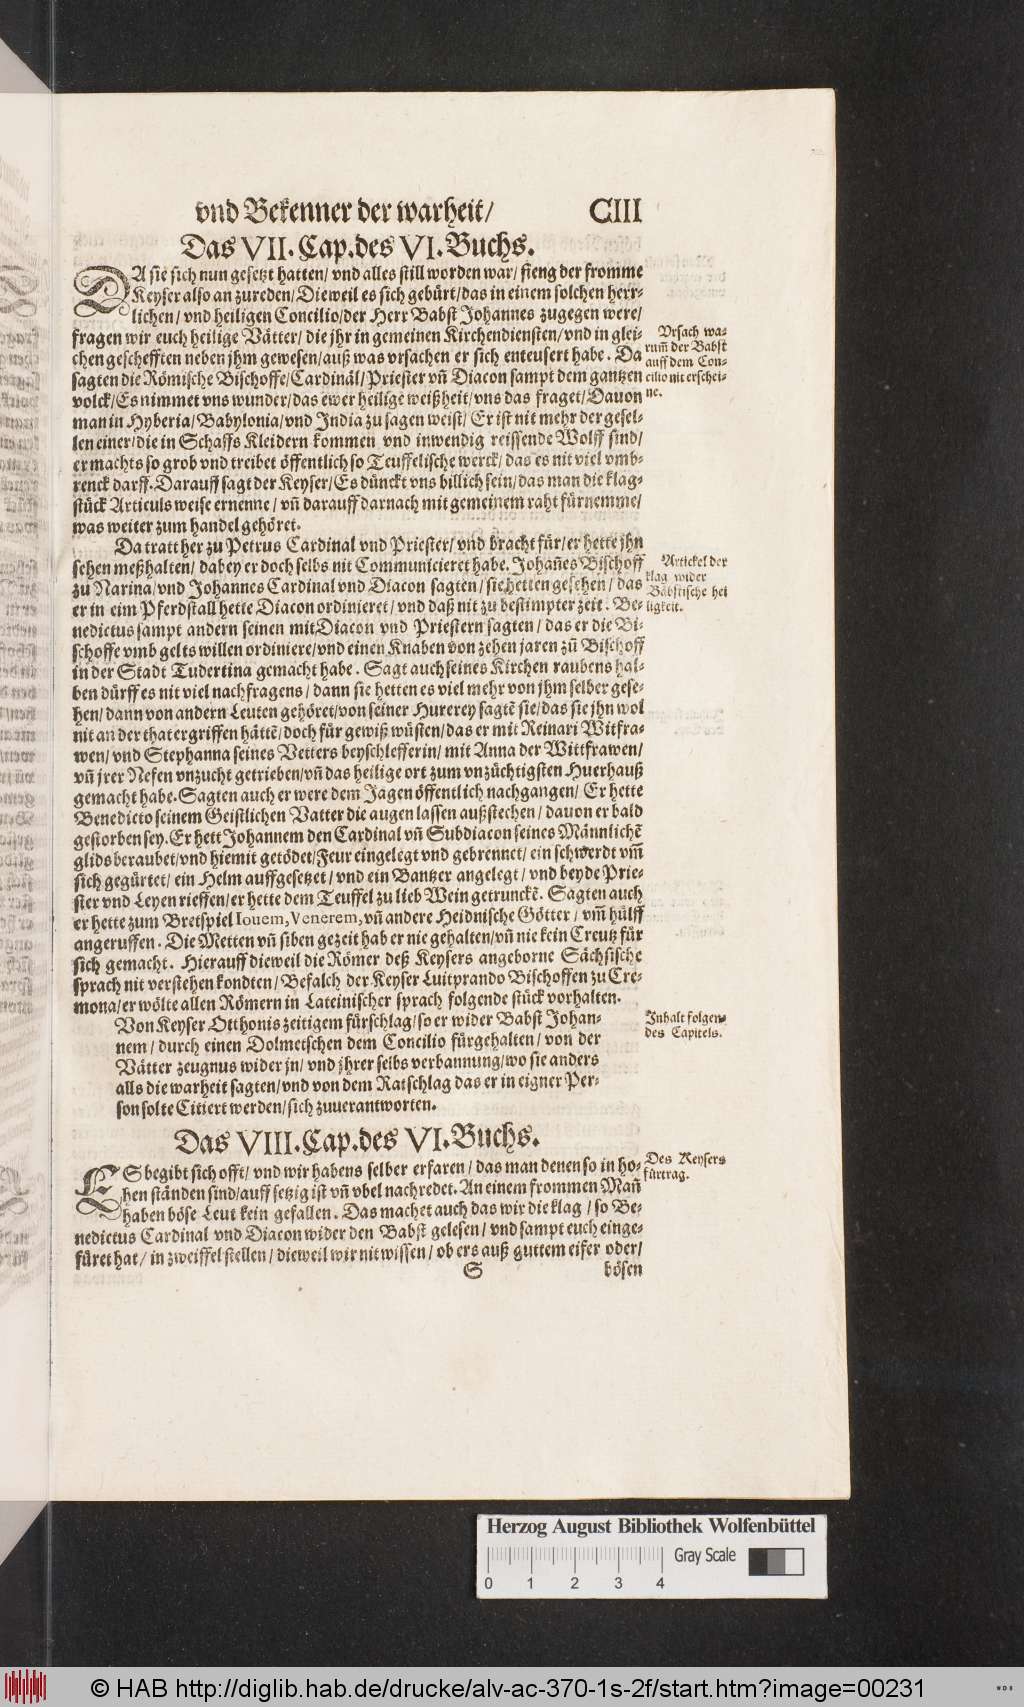 vnd Bekenner der warheit/ CIII
Das VII. Cap. des VI. Buchs.
DA sie sich nun gesetzt hatten/ vnd alles still worden war/ fieng der fromme
Keyser also an zureden/ Dieweil es sich gebürt/ das in einem solchen herr-
lichen/ vnd heiligen Concilio/ der Herr Babst Johannes zugegen were/
fragen wir euch heilige Vätter/ die jhr in gemeinen Kirchendiensten/ vnd in glei-
chen geschefften neben jhm gewesen/ auß was vrsachen er sich enteusert habe. Da
sagten die Römische Bischoffe/ Cardinäl/ Priester vñ Diacon sampt dem gantzen
volck/ Es nimmet vns wunder/ das ewer heilige weißheit/ vns das fraget/ Dauon
man in Hyberia/ Babylonia/ vnd India zu sagen weist/ Er ist nit mehr der gesel-
len einer/ die in Schaffs Kleidern kommen vnd inwendig reissende Wolff sind/
er machts so grob vnd treibet öffentlich so Teuffelische werck/ das es nit viel vmb-
renck darff. Darauff sagt der Keyser/ Es dünckt vns billich sein/ das man die klag-
stück Articuls weise ernenne/ vñ darauff darnach mit gemeinem raht fürnemme/
was weiter zum handel gehöret.
Vrsach wa-
rum̃ der Babst
auff dem Con-
cilio nit erschei-
ne.
Da tratt her zu Petrus Cardinal vnd Priester/ vnd bracht für/ er hette jhn
sehen meßhalten/ dabey er doch selbs nit Communicieret habe. Johañes Bischoff
zu Narina/ vnd Johannes Cardinal vnd Diacon sagten/ sie hetten gesehen/ das
er in eim Pferdstall hette Diacon ordinieret/ vnd daß nit zu bestimpter zeit. Be-
nedictus sampt andern seinen mitDiacon vnd Priestern sagten/ das er die Bi-
schoffe vmb gelts willen ordiniere/ vnd einen Knaben von zehen jaren zů Bischoff
in der Stadt Tudertina gemacht habe. Sagt auch seines Kirchen raubens hal-
ben dürff es nit viel nachfragens/ dann sie hetten es viel mehr von jhm selber gese-
hen/ dann von andern Leuten gehöret/ von seiner Hurerey sagtẽ sie/ das sie jhn wol
nit an der that ergriffen hättẽ/ doch für gewiß wüsten/ das er mit Reinari Witfra-
wen/ vnd Stephanna seines Vetters beyschlefferin/ mit Anna der Wittfrawen/
vñ jrer Nefen vnzucht getrieben/ vñ das heilige ort zum vnzüchtigsten Huerhauß
gemacht habe. Sagten auch er were dem Jagen öffentlich nachgangen/ Er hette
Benedicto seinem Geistlichen Vatter die augen lassen außstechen/ dauon er bald
gestorben sey. Er hett Johannem den Cardinal vñ Subdiacon seines Männlichẽ
glids beraubet/ vnd hiemit getödet/ Feur eingelegt vnd gebrennet/ ein schwerdt vm̃
sich gegürtet/ ein Helm auffgesetzet/ vnd ein Bantzer angelegt/ vnd beyde Prie-
ster vnd Leyen rieffen/ er hette dem Teuffel zu lieb Wein getrunckẽ. Sagten auch
er hette zum Bretspiel Iouem, Venerem, vñ andere Heidnische Götter/ vm̃ hülff
angeruffen. Die Metten vñ siben gezeit hab er nie gehalten/ vñ nie kein Creutz für
sich gemacht. Hierauff dieweil die Römer deß Keysers angeborne Sächsische
sprach nit verstehen kondten/ Befalch der Keyser Luitprando Bischoffen zu Cre-
mona/ er wölte allen Römern in Lateinischer sprach folgende stück vorhalten.
Artickel der
klag wider
Bäbstische hei
ligkeit.
Von Keyser Otthonis zeitigem fürschlag/ so er wider Babst Johan-
nem/ durch einen Dolmetschen dem Concilio fürgehalten/ von der
Vätter zeugnus wider jn/ vnd jhrer selbs verbannung/ wo sie anders
alls die warheit sagten/ vnd von dem Ratschlag das er in eigner Per-
son solte Citiert werden/ sich zuuerantworten.
Inhalt folgen-
des Capitels.
Das VIII. Cap. des VI. Buchs.
ES begibt sich offt/ vnd wir habens selber erfaren/ das man denen so in ho-
hen ständen sind/ auff setzig ist vñ vbel nachredet. An einem frommen Mañ
haben böse Leut kein gefallen. Das machet auch das wir die klag/ so Be-
nedictus Cardinal vnd Diacon wider den Babst gelesen/ vnd sampt euch einge-
füret hat/ in zweiffel stellen/ dieweil wir nit wissen/ ob ers auß guttem eifer oder/
Des Keysers
fürtrag.
S bösen
Herzog August Bibliothek Wolfenbüttel
Gray Scale
0 1 2 3 4
© HAB http://diglib.hab.de/drucke/alv-ac-370-1s-2f/start.htm?image=00231